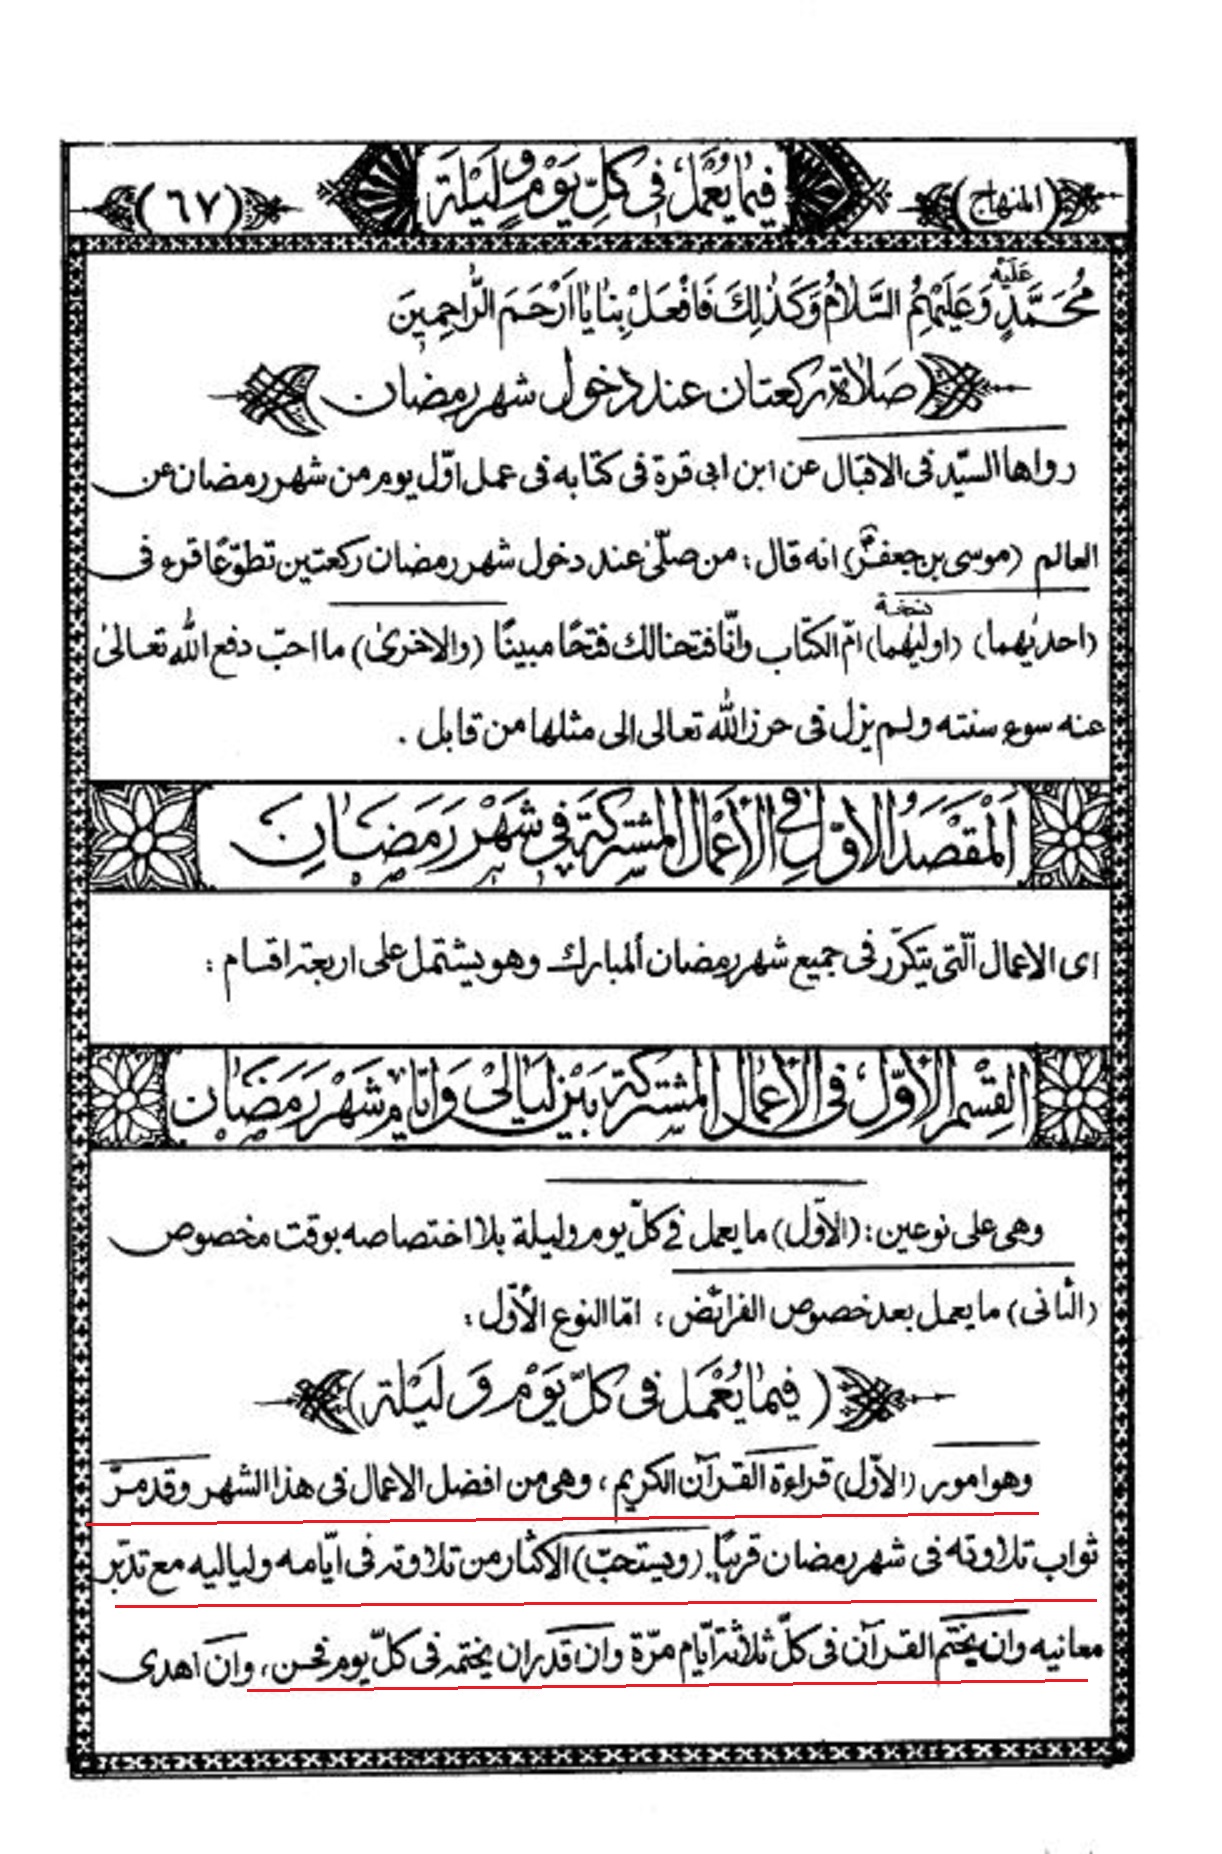 (المنهاج) فيما يعمل في كلّ يوم وليلة (٦٧)
عليه
محمّدٍ وَعَلَيْهِمُ السَّلامُ وَكَذلِكَ فَافْعَلْ بِنا يا اَرْحَمَ الرّاحِمينَ
(صَلاة ركعتان عند دخول شهر رمضان)
رواها السيّد فى الاقبال عن ابن ابى قرة فى كتابه فى عمل اوّل يوم من شهر رمضان عن
العالم (موسى بن جعفر) انه قال: من صلّى عند دخول شهر رمضان ركعتين تطوّعًا قرء فى
نسخة
(احديهما) (اوليهما) امّ الكتاب وانّا فتحنا لك فتحًا مبينًا (والاخرى) ما احبّ دفع الله تعالى
عنه سوء سنته ولم يزل فى حرز الله تعالى الى مثلها من قابل .
اَلْمَقْصَدُ الاوّل في الأعْمال المشتركة في شَهْر رَمَضانِ
اى الاعمال الّتى يتكرّر فى جميع شهر رمضان المبارك وهو يشتمل على اربعة اقسام :
القِسْم الأوّل فى الأعْمال المشتركة بَيْن لَيالى وَايّام شَهْر رَمَضان
وهى على نوعين: (الاوّل) ما يعمل في كلّ يوم وليلة بلا اختصاصه بوقت مخصوص
(الثانى) ما يعمل بعد خصوص الفرائض ، امّا النوع الأوّل :
( فيما يُعْمَل فى كلّ يَوْم وَ لَيَلة)
وهو امور (الاوّل) قراءة القرآن الكريم ، وهى من افضل الاعمال فى هذا الشهر وقد مرّ
ثواب تلاوته فى شهر رمضان قريبًا (ويستحبّ) الاكثار من تلاوته فى ايّامه ولياليه مع تدبّر
معانيه وان يختم القرآن فى كلّ ثلاثة ايّام مرّة وان قدر ان يختمه فى كلّ يوم فحسن ، وان اهدى